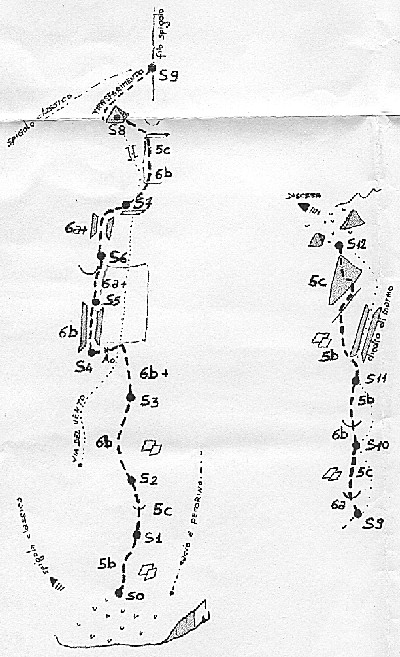 filo spigolo
S9
SPIGOLO CLASSICO
TRASFERIMENTO
S8
5c
6b
S7
6a+
S6
6a+
S5
6b
S4
6b+
S3
VIA DEL VENTO
6b
S2
5c
S1
5b
S0
spigolo classico
LUCIO E PETORINO
DISCESA
S12
5c
5b
S11
5b
6b
S10
5c
6a
S9